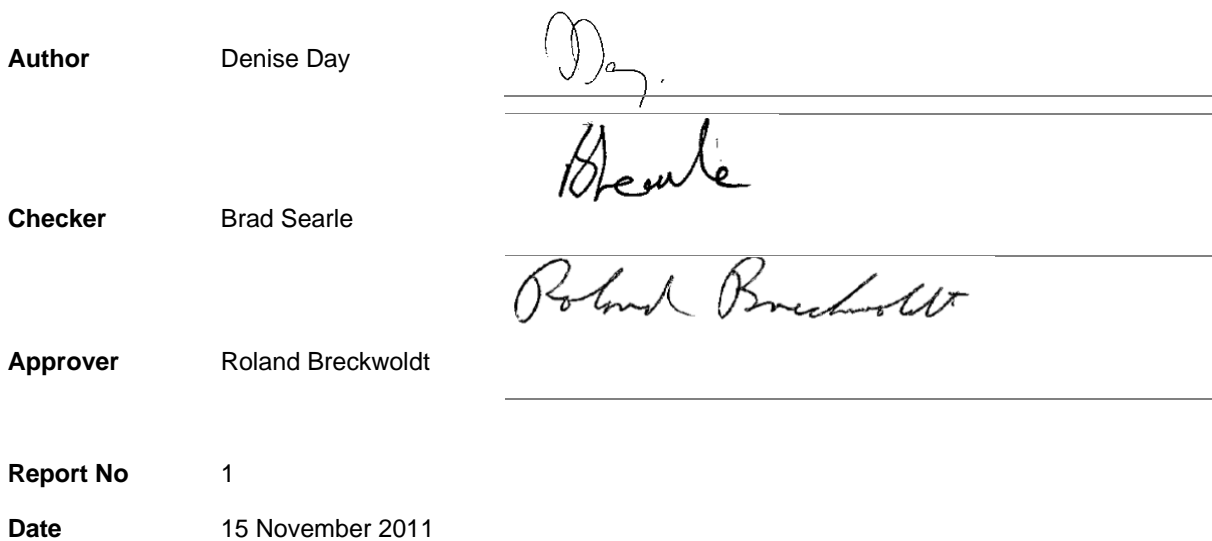 Author Denise Day DDay.
BSearle
Checker Brad Searle
Roland Breckwoldt
Approver Roland Breckwoldt
Report No 1
Date 15 November 2011